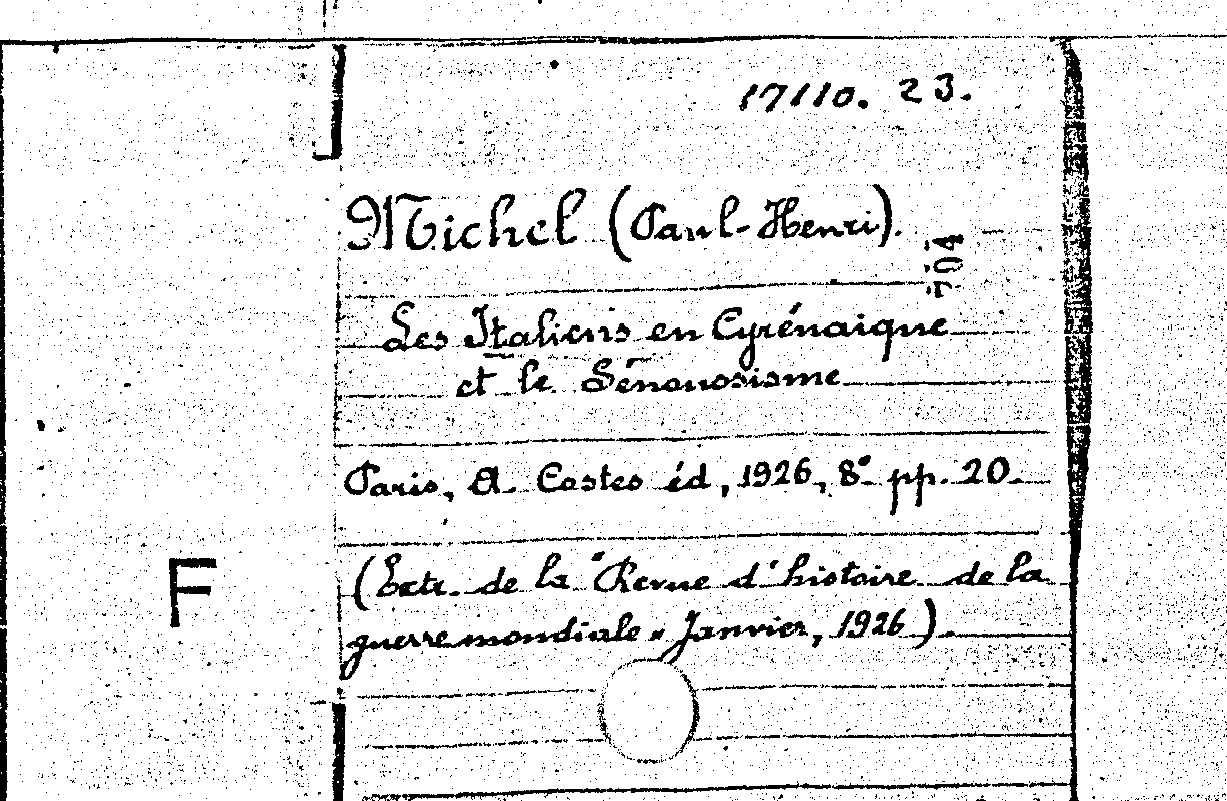 17110. 23.
Michel (Paul-Henri).
704
Les Italiens en Cyrénaique
et le Sénousisme
Paris, A. Costes éd, 1926, 8° pp. 20.
F
(Extr. de la "Revue d'histoire de la
guerre mondiale" Janvier, 1926).